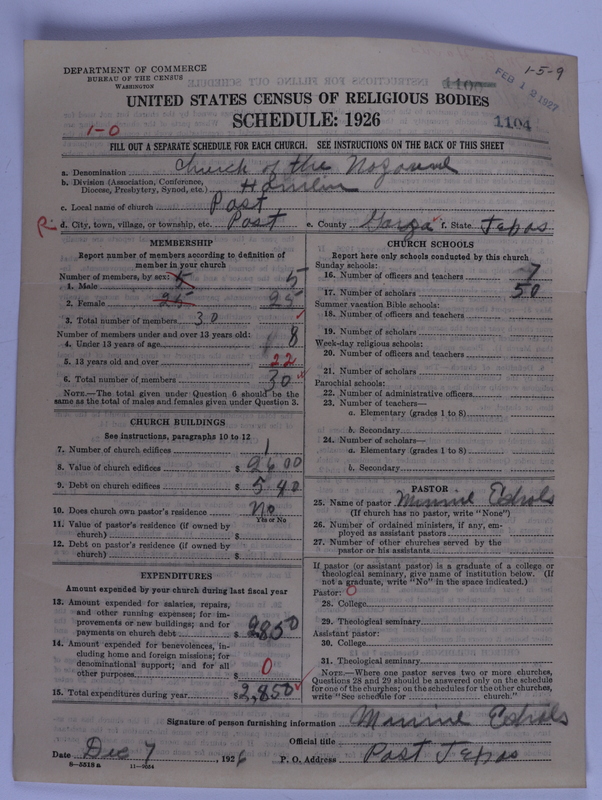 DEPARTMENT OF COMMERCE
BUREAU OF THE CENSUS
WASHINGTON
1-5-9
FEB 12 1927
1100
UNITED STATES CENSUS OF RELIGIOUS BODIES
SCHEDULE: 1926
1104
1-0
FILL OUT A SEPARATE SCHEDULE FOR EACH CHURCH. SEE INSTRUCTIONS ON THE BACK OF THIS SHEET
a. Denomination Church of the Nazarene
b. Division (Association, Conference, Diocese, Presbytery, Synod, etc.) Hamlin
c. Local name of church Post
R. d. City, town, village, or township, etc. Post e. County Garza f. State Texas
MEMBERSHIP
Report number of members according to definition of
member in your church
Number of members, by sex:
1. Male 5 5
2. Female 25 25
3. Total number of members 30
Number of members under and over 13 years old:
4. Under 13 years of age 8
5. 13 years old and over 22
6. Total number of members 30
NOTE.—The total given under Question 6 should be the
same as the total of males and females given under Question 3.
CHURCH BUILDINGS
See instructions, paragraphs 10 to 12
7. Number of church edifices 1
8. Value of church edifices $ 2600
9. Debt on church edifices $ 540
10. Does church own pastor's residence? No
Yes or No
11. Value of pastor's residence (if owned by
church) $
12. Debt on pastor's residence (if owned by
church) $
EXPENDITURES
Amount expended by your church during last fiscal year
13. Amount expended for salaries, repairs,
and other running expenses; for im-
provements or new buildings; and for
payments on church debt $ 2850
14. Amount expended for benevolences, in-
cluding home and foreign missions; for
denominational support; and for all
other purposes $ 0
15. Total expenditures during year $ 2,850
CHURCH SCHOOLS
Report here only schools conducted by this church
Sunday schools:
16. Number of officers and teachers 7
17. Number of scholars 50
Summer vacation Bible schools:
18. Number of officers and teachers
19. Number of scholars
Week-day religious schools:
20. Number of officers and teachers
21. Number of scholars
Parochial schools:
22. Number of administrative officers
23. Number of teachers—
a. Elementary (grades 1 to 8)
b. Secondary
24. Number of scholars—
a. Elementary (grades 1 to 8)
b. Secondary
PASTOR
25. Name of pastor Minnie Echols
(If church has no pastor, write "None")
26. Number of ordained ministers, if any, em-
ployed as assistant pastors
27. Number of other churches served by the
pastor or his assistants
If pastor (or assistant pastor) is a graduate of a college or
theological seminary, give name of institution below. (If
not a graduate, write "No" in the space indicated.)
Pastor: 0
28. College
29. Theological seminary
Assistant pastor:
30. College
31. Theological seminary
NOTE.—Where one pastor serves two or more churches,
Questions 28 and 29 should be answered only on the schedule
for one of the churches; on the schedules for the other churches,
write "See schedule for church."
Signature of person furnishing information Minnie Echols
Official title
Date Dec 7, 1926 P. O. Address Post Texas
8-5518a 11-9034